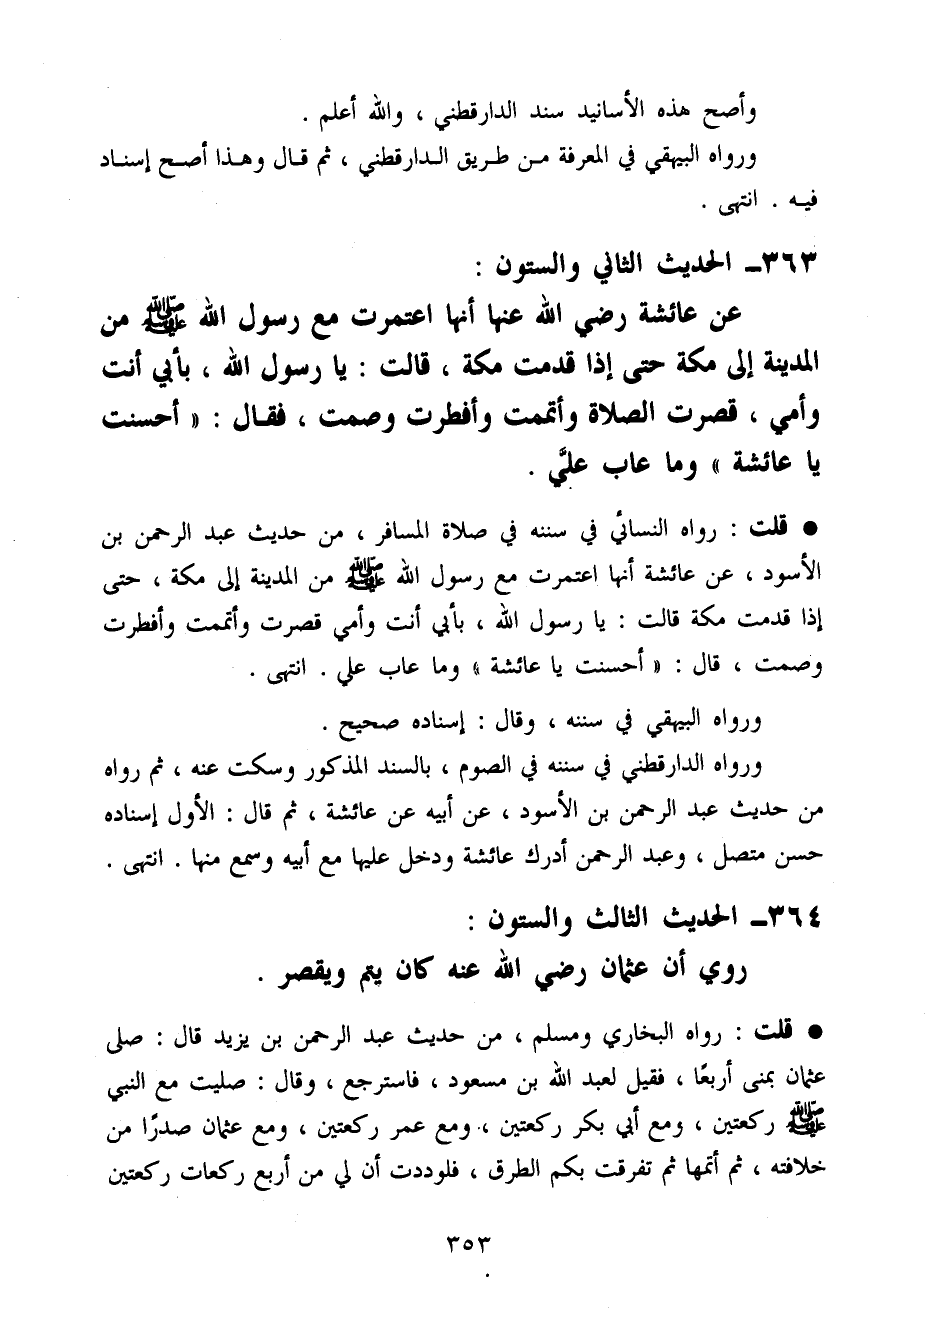 وأصح هذه الأسانيد سند الدارقطني ، والله أعلم .
ورواه البيهقي في المعرفة من طريق الدارقطني ، ثم قال وهذا أصح إسناد
فيه . انتهى .
٣٦٣ـ الحديث الثاني والستون :
عن عائشة رضي الله عنها أنها اعتمرت مع رسول الله ﷺ من
المدينة إلى مكة حتى إذا قدمت مكة ، قالت : يا رسول الله ، بأبي أنت
وأمي ، قصرت الصلاة وأتممت وأفطرت وصمت ، فقال : « أحسنت
يا عائشة » وما عاب عليَّ .
● قلت : رواه النسائي في سننه في صلاة المسافر ، من حديث عبد الرحمن بن
الأسود ، عن عائشة أنها اعتمرت مع رسول الله ﷺ من المدينة إلى مكة ، حتى
إذا قدمت مكة قالت : يا رسول الله ، بأبي أنت وأمي قصرت وأتممت وأفطرت
وصمت ، قال : « أحسنت يا عائشة » وما عاب علي . انتهى .
ورواه البيهقي في سننه ، وقال : إسناده صحيح .
ورواه الدارقطني في سننه في الصوم ، بالسند المذكور وسكت عنه ، ثم رواه
من حديث عبد الرحمن بن الأسود ، عن أبيه عن عائشة ، ثم قال : الأول إسناده
حسن متصل ، وعبد الرحمن أدرك عائشة ودخل عليها مع أبيه وسمع منها . انتهى .
٣٦٤ـ الحديث الثالث والستون :
روي أن عثمان رضي الله عنه كان يتم ويقصر .
● قلت : رواه البخاري ومسلم ، من حديث عبد الرحمن بن يزيد قال : صلى
عثمان بمنى أربعًا ، فقيل لعبد الله بن مسعود ، فاسترجع ، وقال : صليت مع النبي
ﷺ ركعتين ، ومع أبي بكر ركعتين ، ومع عمر ركعتين ، ومع عثمان صدرًا من
خلافته ، ثم أتمها ثم تفرقت بكم الطرق ، فلوددت أن لي من أربع ركعات ركعتين
٣٥٣